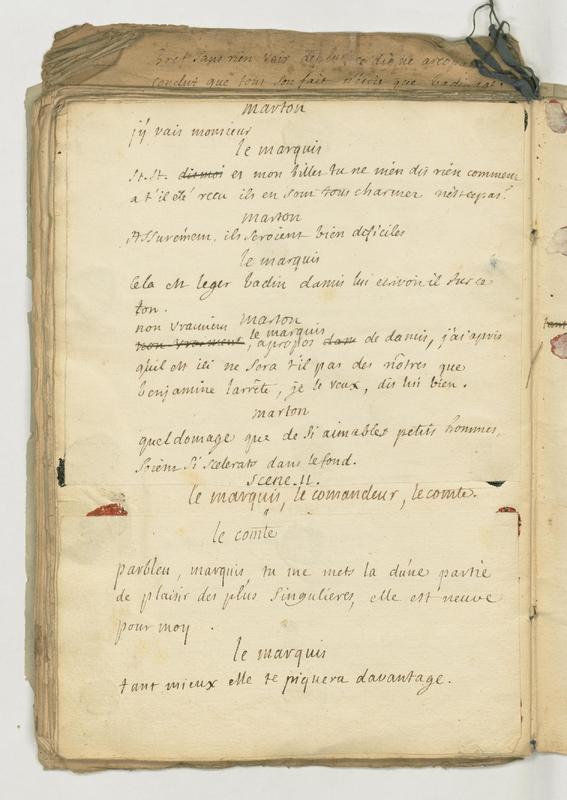 Bref sans rien voir digne
conclut que tous son fait n'étois que badinage.
marton
j'y vais monsieur
le marquis
st. st. dis moi et mon billet tu ne m'en dis rien comment
a t'il été reçu ils en sont tous charmez n'est ce pas?
marton
Assurément, ils seroient bien dificiles
le marquis
Cela est leger badin damis lui ecrivoit il sur ce
ton.
non vraiment marton
non vraiment le marquis
, apropos dam de damis, j'ai apris
qu'il est ici ne sera t'il pas des nôtres que
benjamine l'arrête, je le veux, dis lui bien.
marton
quel domage que de si aimables petits hommes,
soient si scelerats dans le fond.
scene 11.
le marquis, le comandeur, le comte.
le comte
parbleu, marquis, tu me mets la d'une partie
de plaisir des plus singulieres, elle est neuve
pour moy .
le marquis
tant mieux elle te piquera davantage.
tant